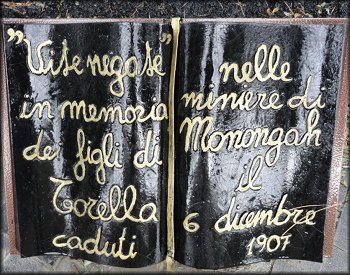 "Vite negate"
in memoria
dei figli di
Torella
caduti
nelle
miniere di
Monongah
il
6 dicembre
1907